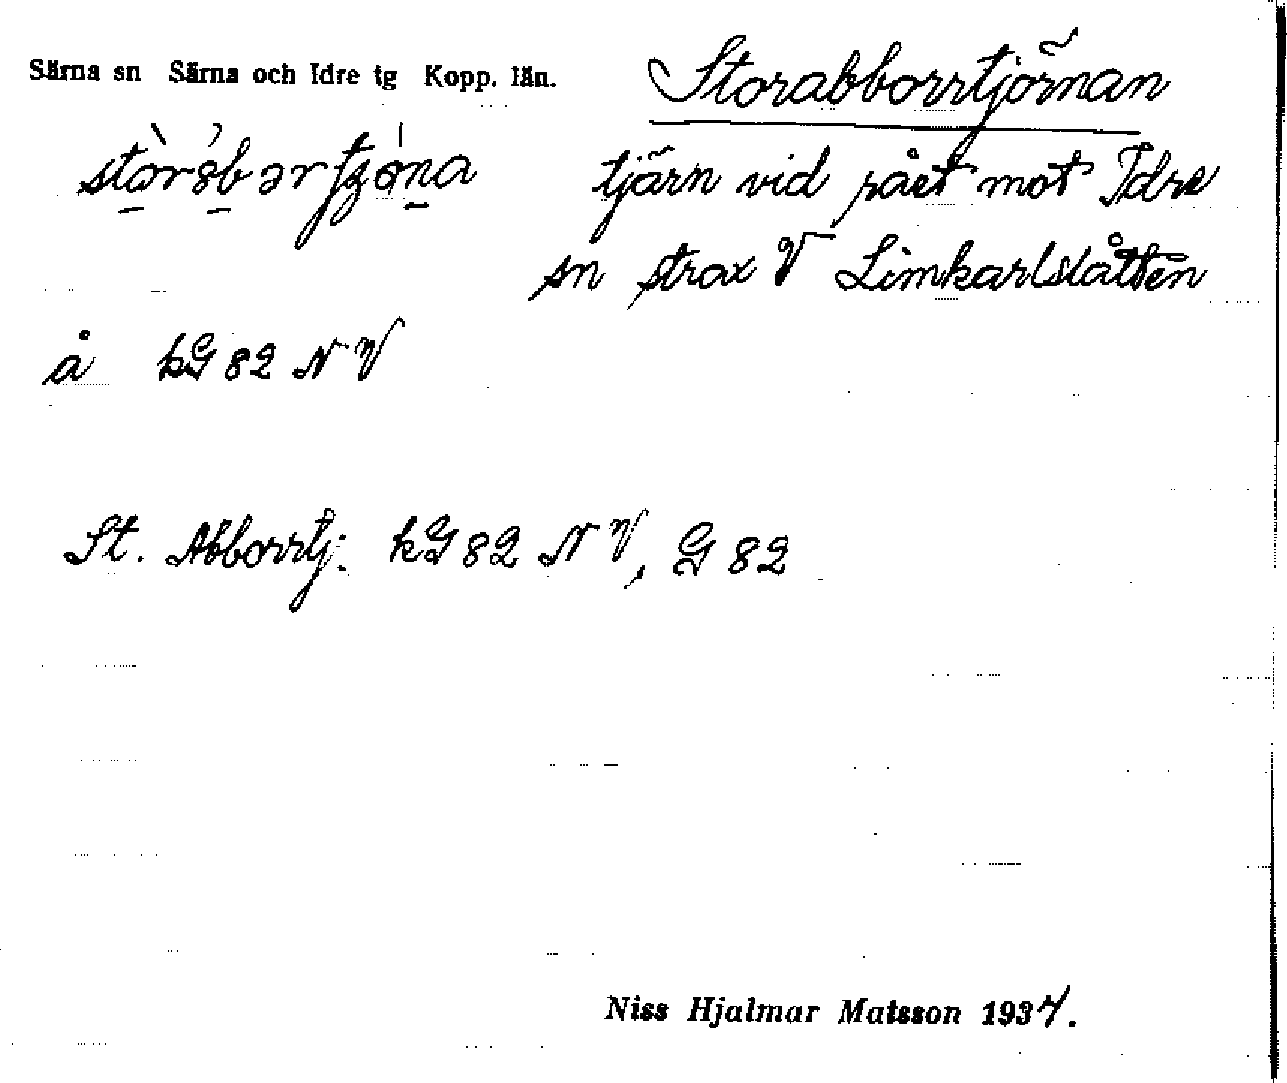 Särna sn Särna och Idre tg Kopp. län.
Storabborrtjörnan
tjärn vid rået mot Idre
sn strax V Limkarlslåtten
å kG 82 N V
St. Abborrtj: kG 82 N V, G 82
Niss Hjalmar Matsson 1937.